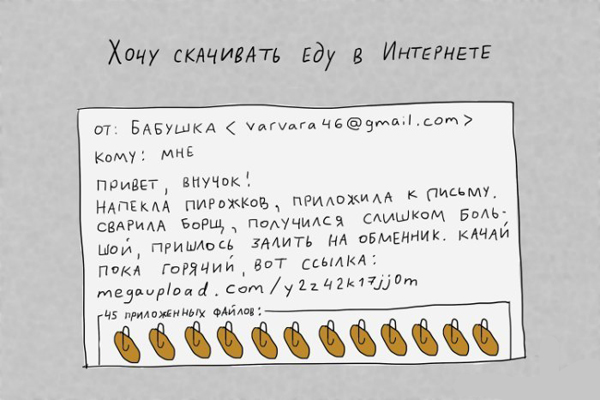 Хочу скачивать еду в Интернете
от: Бабушка <varvara46@gmail.com>
кому: мне
привет, внучок!
напекла пирожков, приложила к письму.
сварила борщ, получился слишком боль-
шой, пришлось залить на обменник. качай
пока горячий, вот ссылка:
megaupload.com/y2z42k17jj0m
45 приложенных файлов: